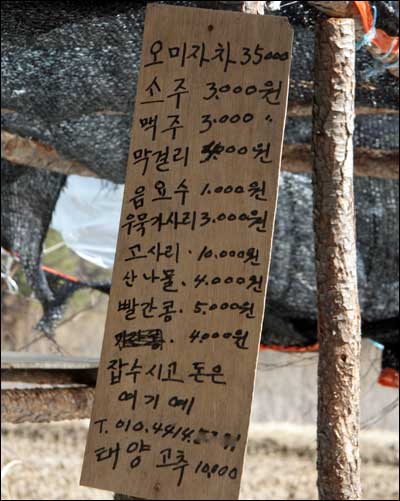 오미자차 35000
쓰주 3.000원
맥주 3.000 〃
막걸리 000원
음요수 1.000원
우묵가사리 3.000원
고사리. 10.000원
산나물. 4.000원
빨간콩. 5.000원
4000원
잡수시고 돈은
여기예
T. 010.4414.
태양고추 10,000